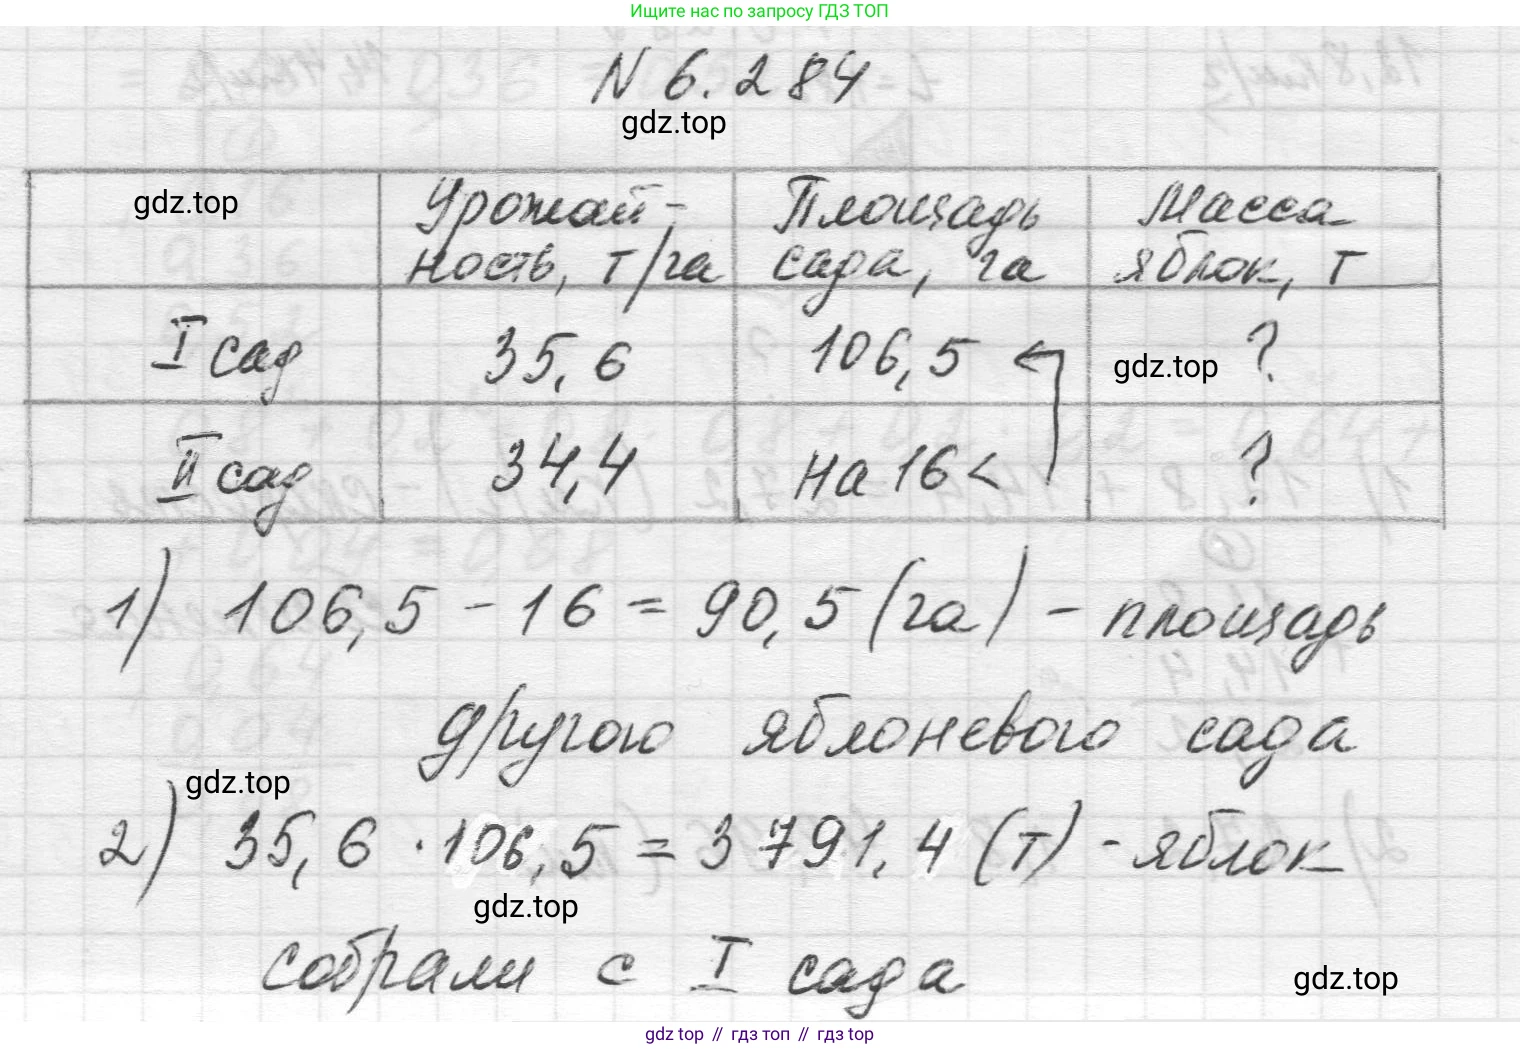 Ищите нас по запросу ГДЗ ТОП
N 6.284
gdz.top
gdz.top
Урожай-
ность, т/га
Площадь
сада, га
Масса
яблок, т
I сад
35,6
106,5
gdz.top
?
II сад
34,4
на 16 <
?
1) 106,5 - 16 = 90,5 (га) - площадь
другого яблоневого сада
gdz.top
2) 35,6 · 106,5 = 3 791,4 (т) - яблок
gdz.top
собрали с I сада
gdz.top
gdz top // гдз топ // гдз top